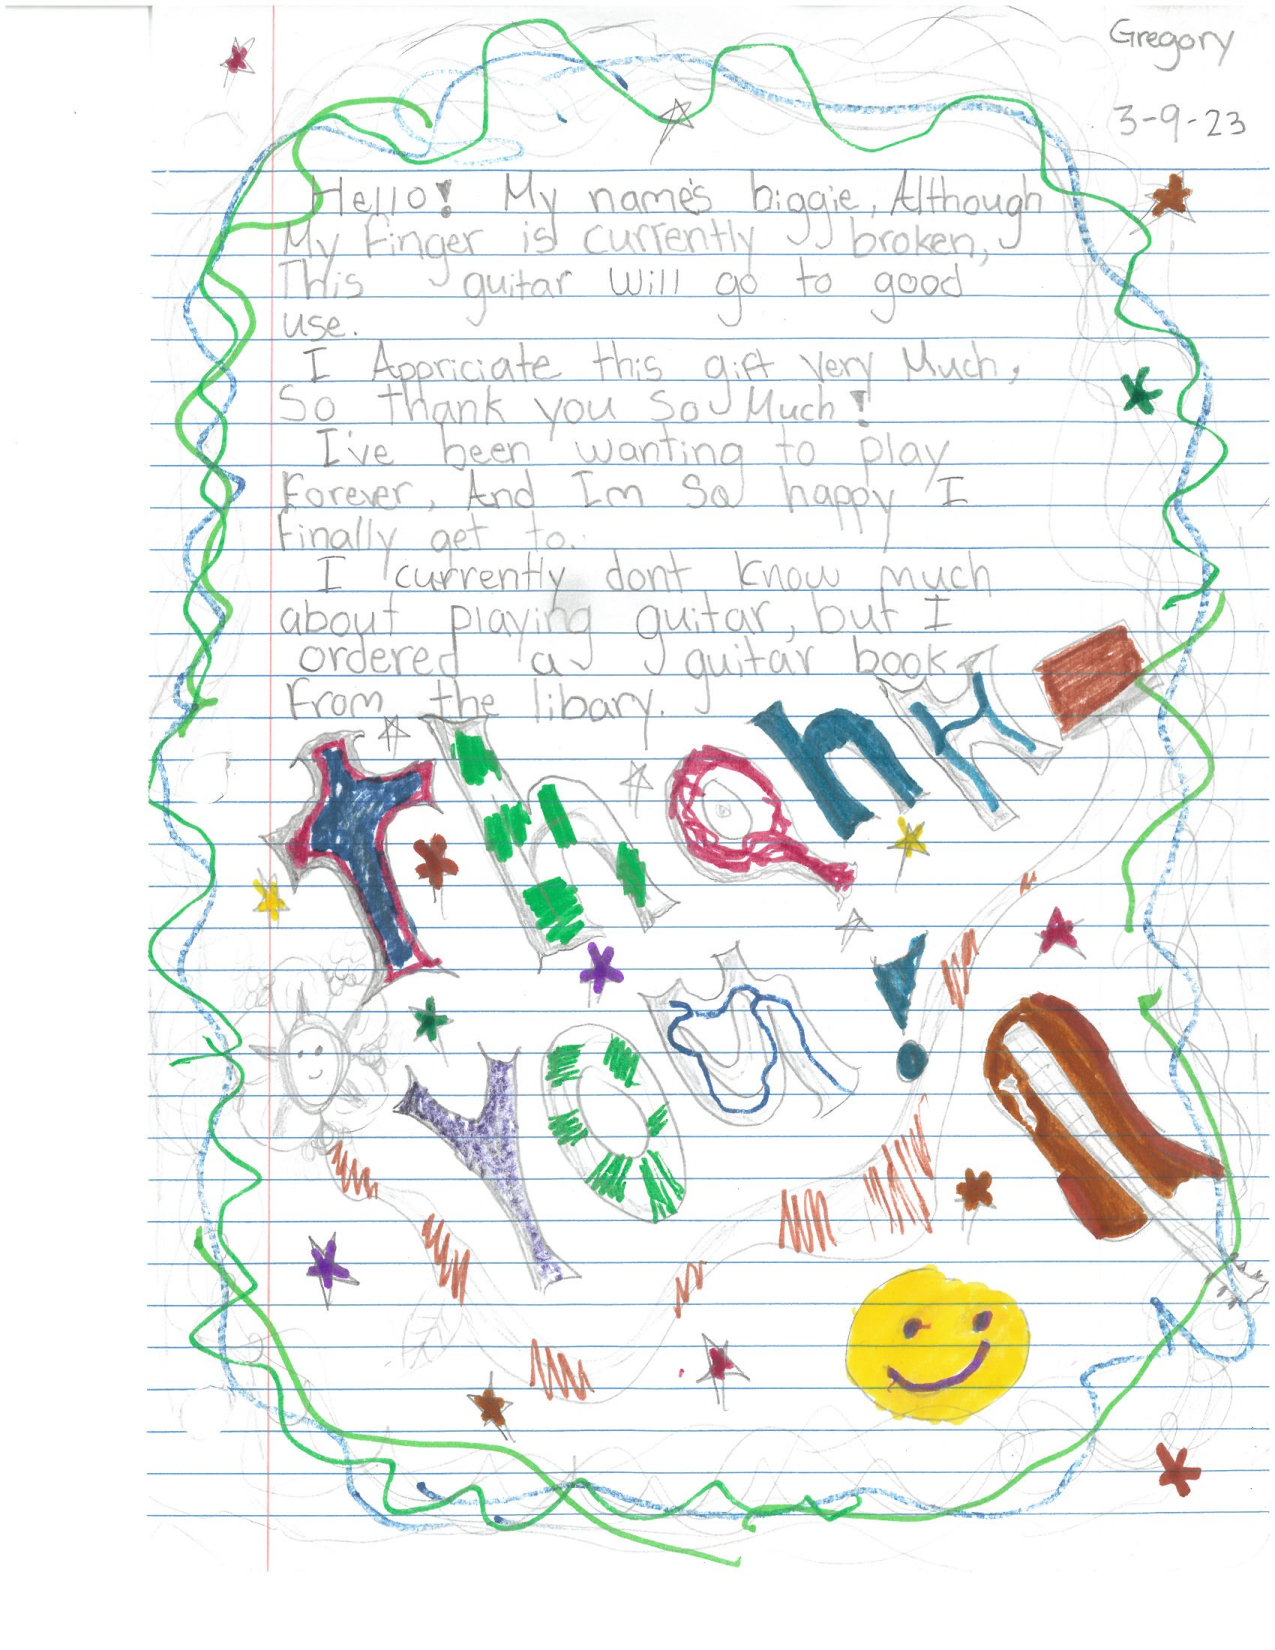 Gregory
3-9-23
Hello! My name's biggie, Although
My Finger is currently broken,
This guitar Will go to good
use.
I Appriciate this gift Very Much,
So thank you so Much!
I've been wanting to play
Forever, And Im So happy I
Finally get to.
I currently dont know much
about playing guitar, but I
ordered a guitar book
From the libary.
thank
you!